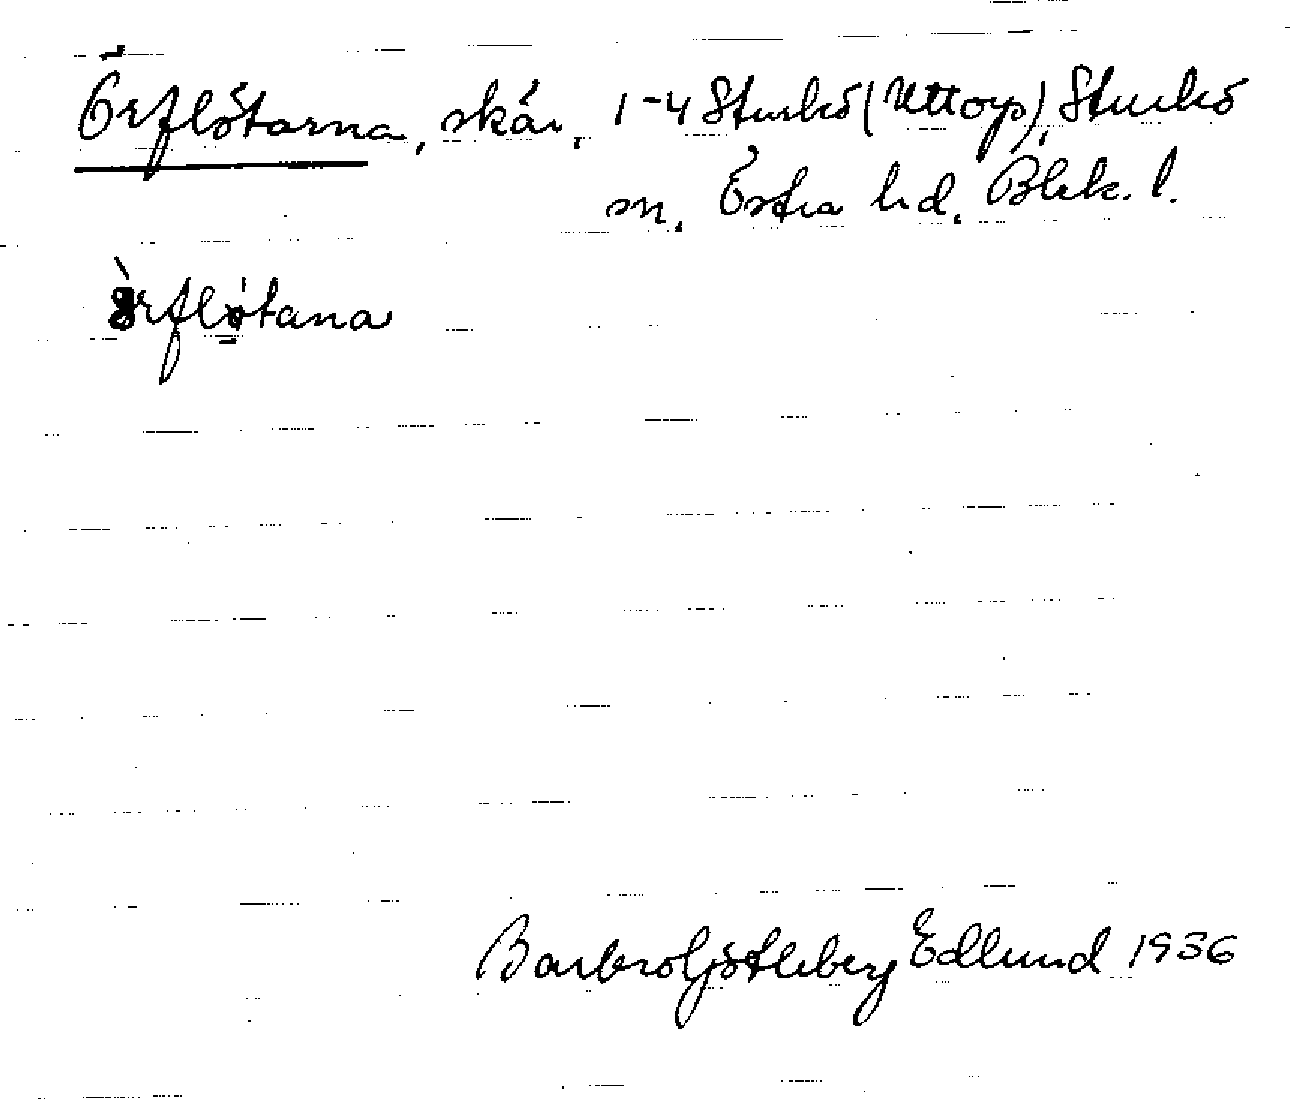 Örflötarna, skär, 1-4 Sturkö (Uttorp), Sturkö
sn. Östra hd. Blek. l.
örflötana
Barbro Götleberg Edlund 1936